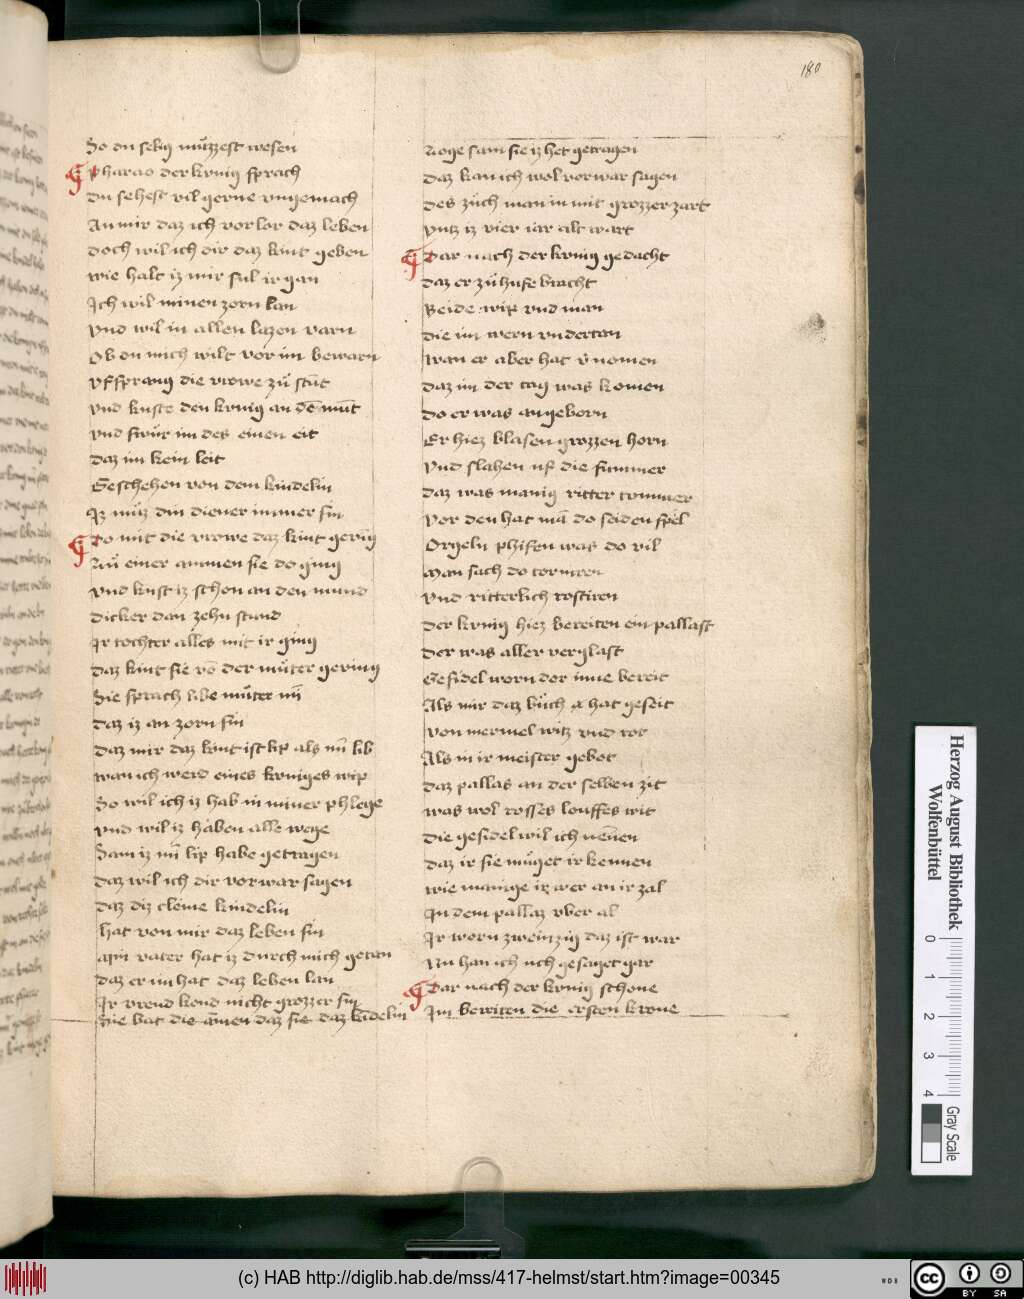 180
So du selig muͦzzest wesen
Pharao der kvnig sprach
du sehest vil gerne vngemach
An mir daz ich vorlor daz leben
doch wil ich dir daz kint geben
wie halt iz mir sul irgan
Ich wil minen zorn lan
vnd wil in allen lazen varn
Ob du mich wilt vor im bewarn
vf sprang die vrowe zuͦ stūt
vnd kuste den kvnig an dē mūt
vnd swuͦr im des einen eit
daz im kein leit
Geschehen von dem kindelin
Iz muͦz din diener immer sin
Do mit die vrowe daz kint gevīg
Zuͦ einer ammen sie do ging
vnd kust iz schon an den mund
dicker dan zehn stund
Ir tochter alles mit ir ging
daz kint sie vō der muͦter gering
Sie sprach libe muͦter mī
daz iz an zorn sin
daz mir daz kint ist lip als mī lib
wan ich werd eines kvniges wip
So wil ich iz hab in miner phlege
vnd wil iz haben alle wege
Sam iz mī lip habe getragen
daz wil ich dir vorwar sagen
daz diz cleine kindelin
hat von mir daz leben sin
Min vater hat iz durch mich getan
daz er im hat daz leben lan
Ir vreud kond nicht grozzer sin
Sie bat die āmen daz sie daz kīdelin
Zoge sam sie iz het getragen
daz kan ich wol vorwar sagen
des zuͦch man in mit grozzer zart
vntz iz vier iar alt wart
Dar nach der kvnig gedacht
daz er zuͦ huse bracht
Beide wip vnd man
die im wern vndertan
wan er aber hat v̄nomen
daz im der tag was komen
do er was angeborn
Er hiez blasen grozzen horn
vnd slahen uf die summer
daz was manig ritter tummer
vor den hat mā do seiden spel
Orgeln phifen was do vil
man sach do torniren
vnd ritterlich iostiren
der kvnig hiez bereiten ein pallast
der was aller verglast
Gesidel worn dor inne bereit
Als mir daz buͦch hat geseit
von mermel wiz vnd rot
Als in ir meister gebot
daz pallas an der selben zit
was wol rosses louffes wit
die gesidel wil ich nēnen
daz ir sie muͦget irkennen
wie manige ir wer an ir zal
In dem pallaz vber al
Ir worn zweinzig daz ist war
Nu han ich uch gesaget gar
Dar nach der kvnig schone
Im bereiten die ersten krone
Herzog August Bibliothek
Wolfenbüttel
0 1 2 3 4
Gray Scale
(c) HAB http://diglib.hab.de/mss/417-helmst/start.htm?image=00345
WDB
cc
BY SA